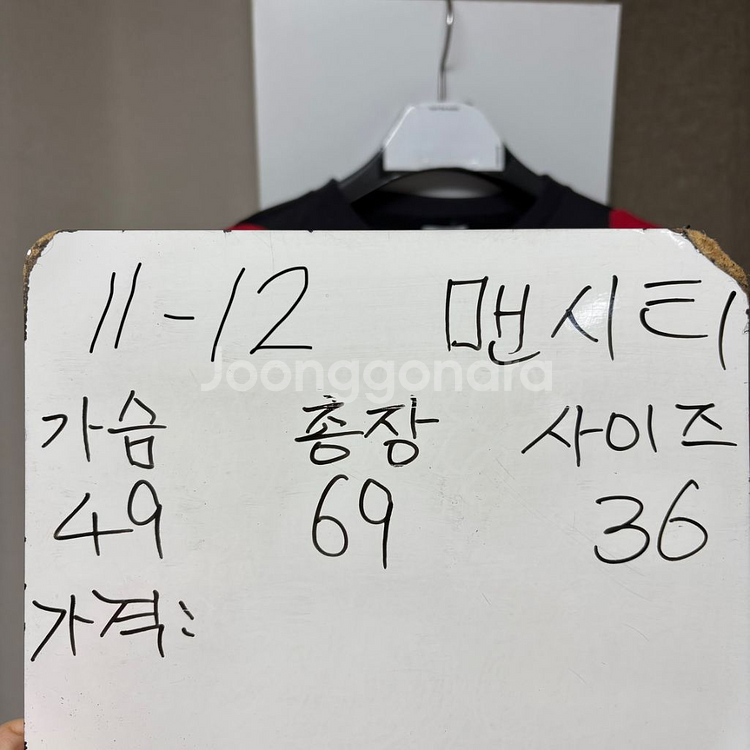 11-12 맨시티
Joonggonara
가슴 총장 사이즈
49 69 36
가격: